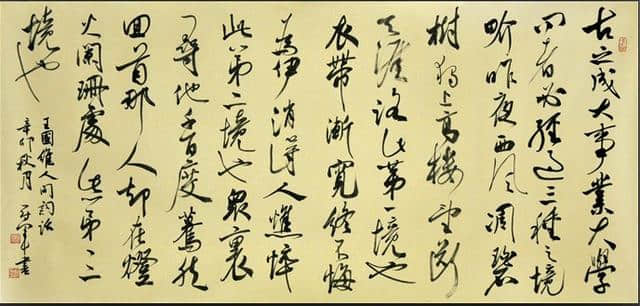 古之成大事業大學
問者必經過三種之境
畍昨夜西風凋碧
樹獨上高樓望斷
天涯路此第一境也
衣帶漸寬終不悔
為伊消得人憔悴
此第二境也眾裏
尋他千百度驀然
回首那人却在燈
火闌珊處此第三
境也
王國維人間詞話
辛卯秋月 書